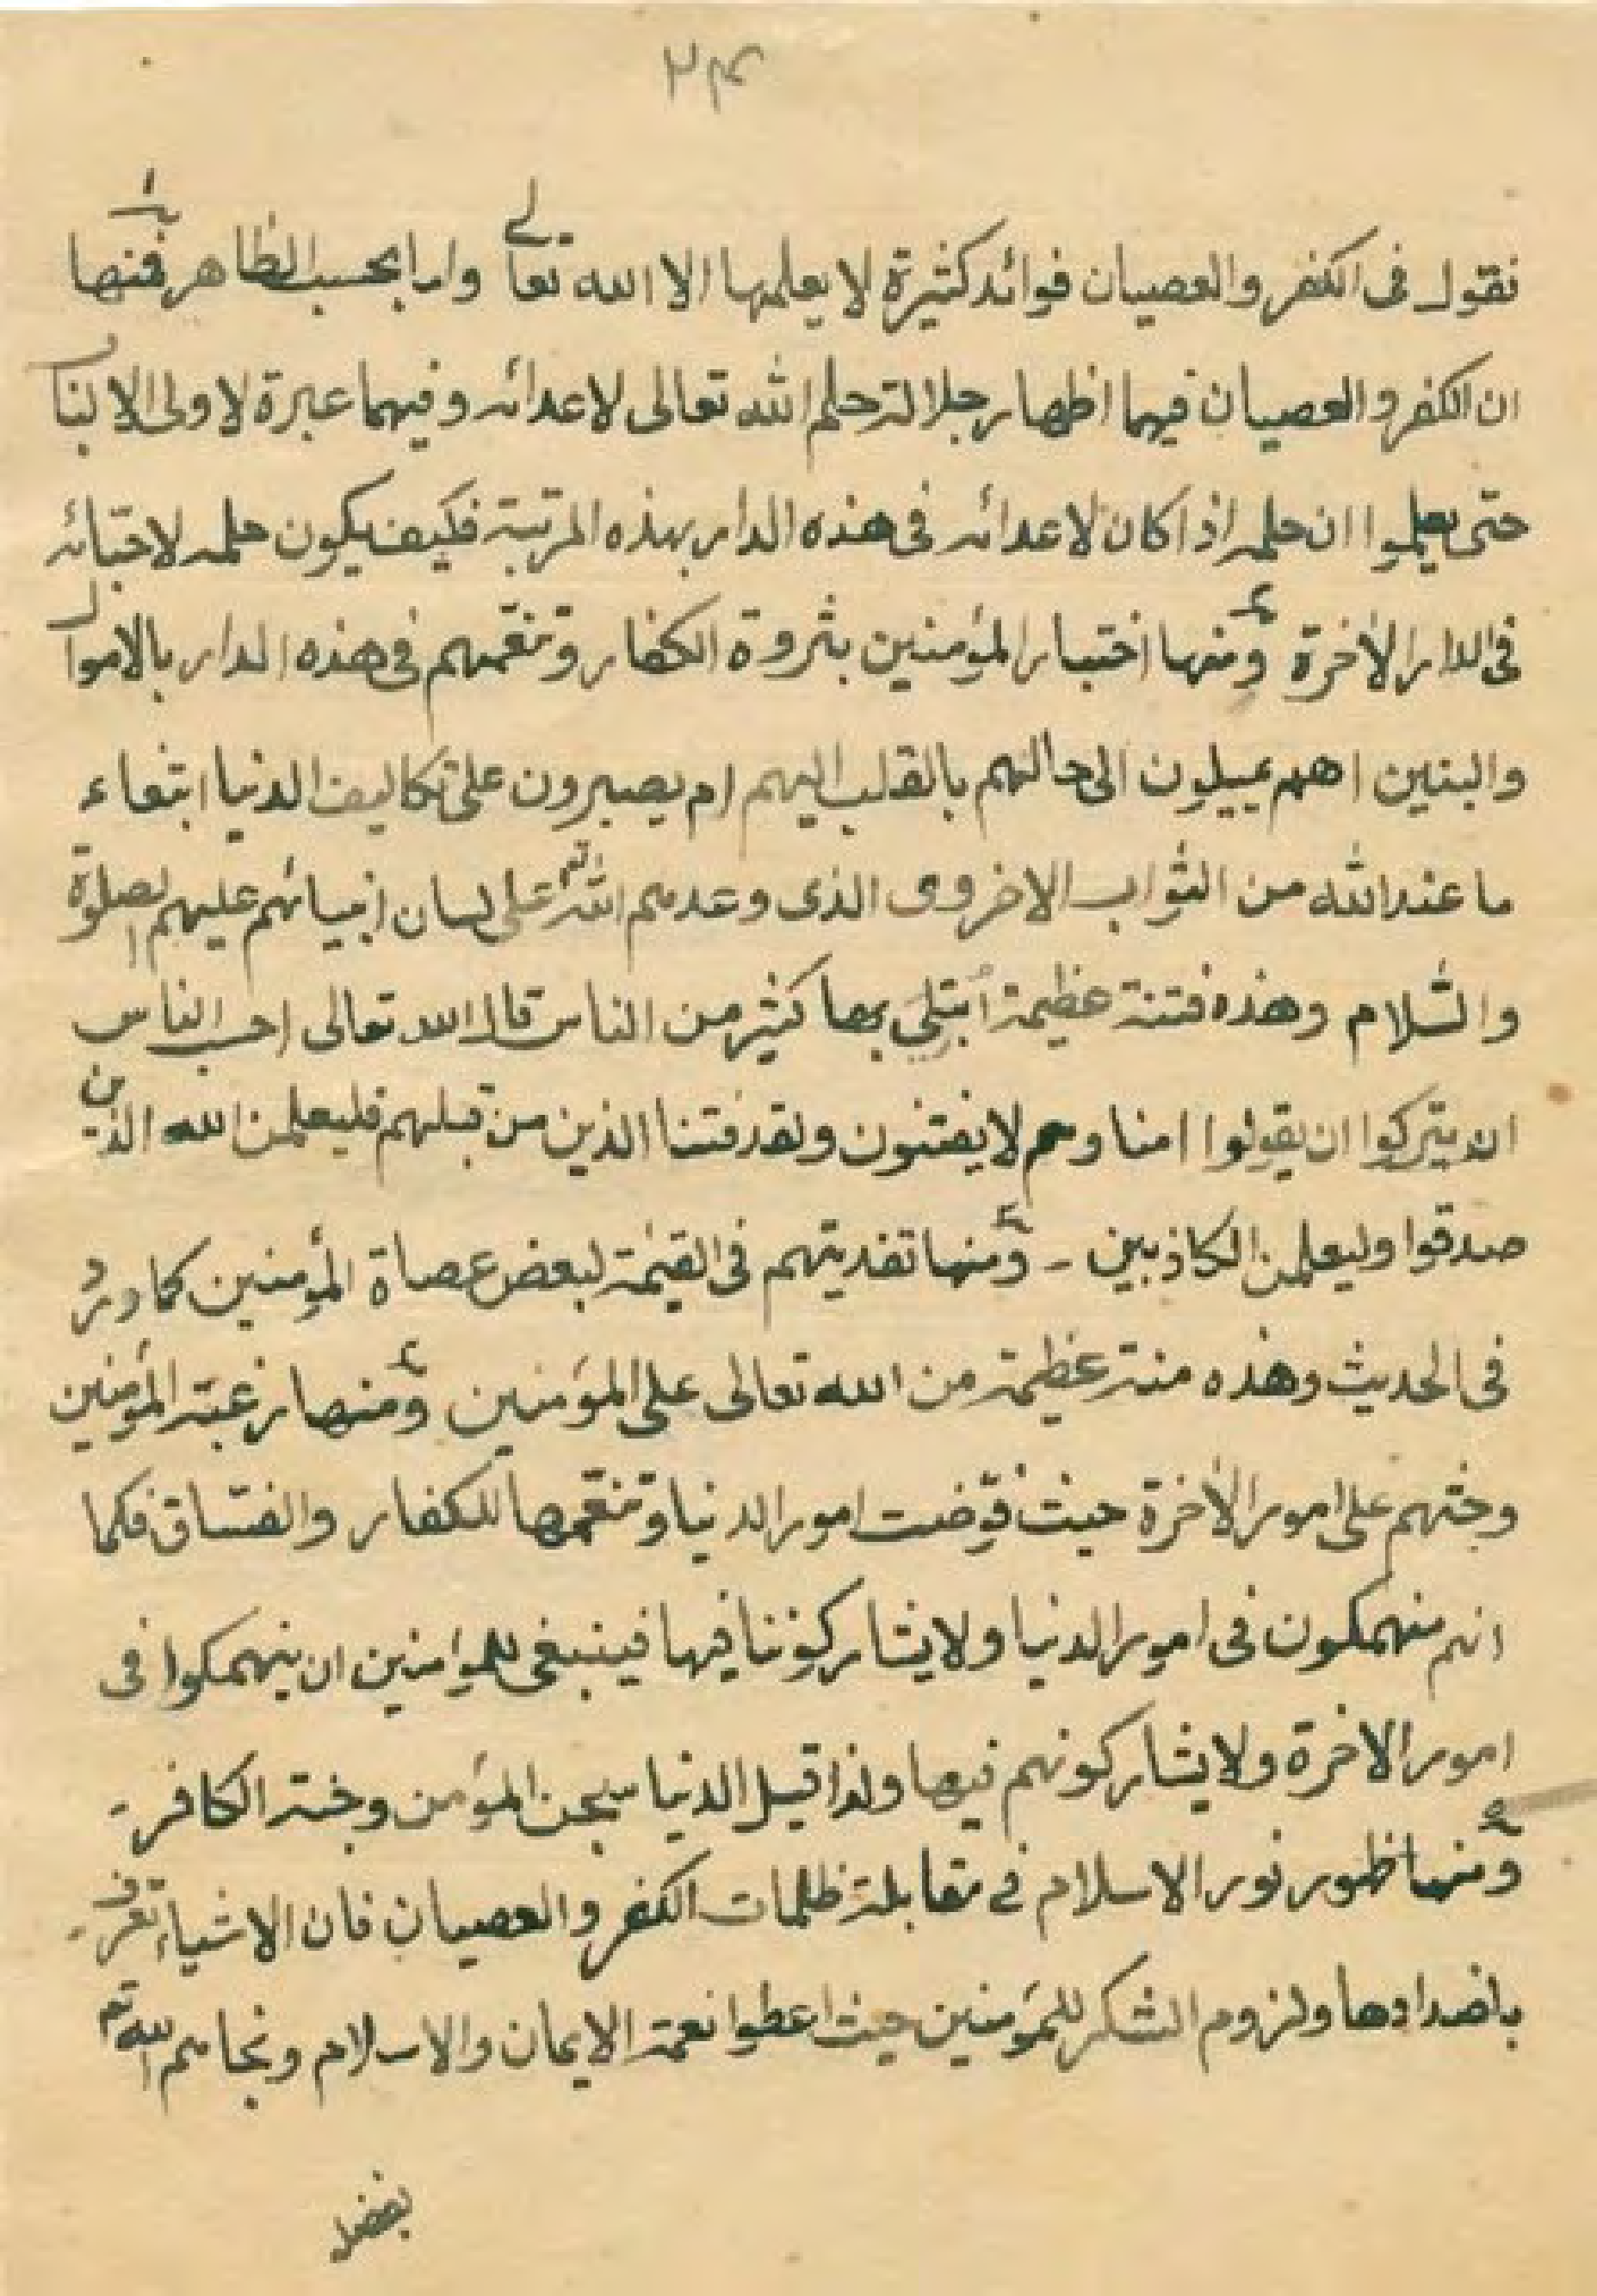 ٢٣
نقول فى الكفر والعصيان فوائد كثيرة لا يعلمها الا الله تعالى واما بحسب الظاهر فمنها
ان الكفر والعصيان فيهما اظهار جلالة حلم الله تعالى لاعدائه وفيهما عبرة لاولى الالباب
حتى يعلموا ان حلمه اذا كان لاعدائه فى هذه الدار بهذه المرتبة فكيف يكون حلمه لاحبائه
فى الدار الاخرة ومنها اختبار المؤمنين بثروة الكفار وتنعمهم فى هذه الدار بالاموال
والبنين اهم يميلون الى حالهم بالقلب اليهم ام يصبرون على تكاليف الدنيا ابتغاء
ما عند الله من الثواب الاخروى الذى وعدهم الله تع على لسان انبيائهم عليهم الصلوة
والسّلام وهذه فتنة عظيمة أبتلي بها كثير من الناس قال الله تعالى احسب الناس
ان يتركوا ان يقولوا امنا وهم لا يفتنون ولقد فتنا الذين من قبلهم فليعلمن الله الذين
صدقوا وليعلمن الكاذبين - ومنها تفديتهم فى القيٰمة لبعض عصاة المؤمنين كما ورد
فى الحديث وهذه منة عظيمة من الله تعالى على المؤمنين ومنها رغبة المؤمنين
وحثهم على امور الاخرة حيث فوّضت امور الدنيا وتنعّمها للكفار والفسّاق فكما
انهم منهمكون فى امور الدنيا ولا يشاركوننا فيها فينبغى للمؤمنين ان ينهمكوا فى
امور الاخرة ولا يشاركونهم فيها ولذا قيل الدنيا سجن المؤمن وجنة الكافر -
ومنها ظهور نور الاسلام فى مقابلة ظلمات الكفر والعصيان فان الاشياء تعرف
باضدادها ولزوم الشكر للمؤمنين حيث اعطوا نعمة الايمان والاسلام ونجاهم الله تع
بفضله